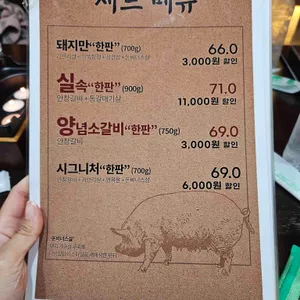 세트 메뉴
돼지만“한판” (700g)
66.0
3,000원 할인
실속“한판” (900g)
안창갈비 + 동갈매기살
71.0
11,000원 할인
양념소갈비“한판” (750g)
안창갈비
69.0
3,000원 할인
시그니처“한판” (700g)
69.0
6,000원 할인